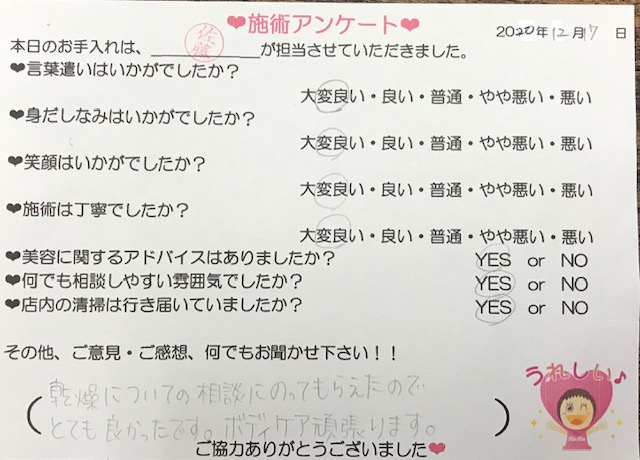 ❤施術アンケート❤
2020年12月17日
本日のお手入れは、佐藤が担当させていただきました。
❤言葉遣いはいかがでしたか？
大変良い・良い・普通・やや悪い・悪い
❤身だしなみはいかがでしたか？
大変良い・良い・普通・やや悪い・悪い
❤笑顔はいかがでしたか？
大変良い・良い・普通・やや悪い・悪い
❤施術は丁寧でしたか？
大変良い・良い・普通・やや悪い・悪い
❤美容に関するアドバイスはありましたか？ YES or NO
❤何でも相談しやすい雰囲気でしたか？ YES or NO
❤店内の清掃は行き届いていましたか？ YES or NO
その他、ご意見・ご感想、何でもお聞かせ下さい！！
うれしい♪
（乾燥についての相談にのってもらえたので
とても良かったです。ボディケア頑張ります。）
ご協力ありがとうございました❤